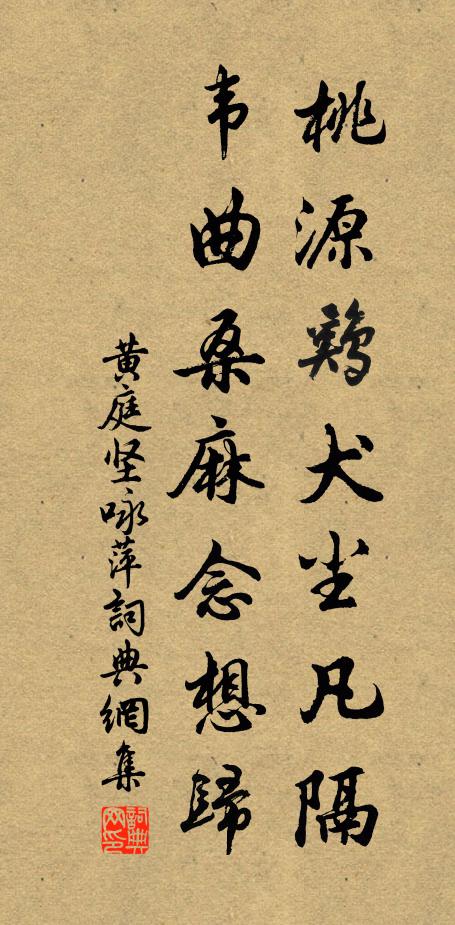 桃源鷄犬尘凡隔
韦曲桑麻念想歸
黄庭坚咏萍詞典網集
詞典網印